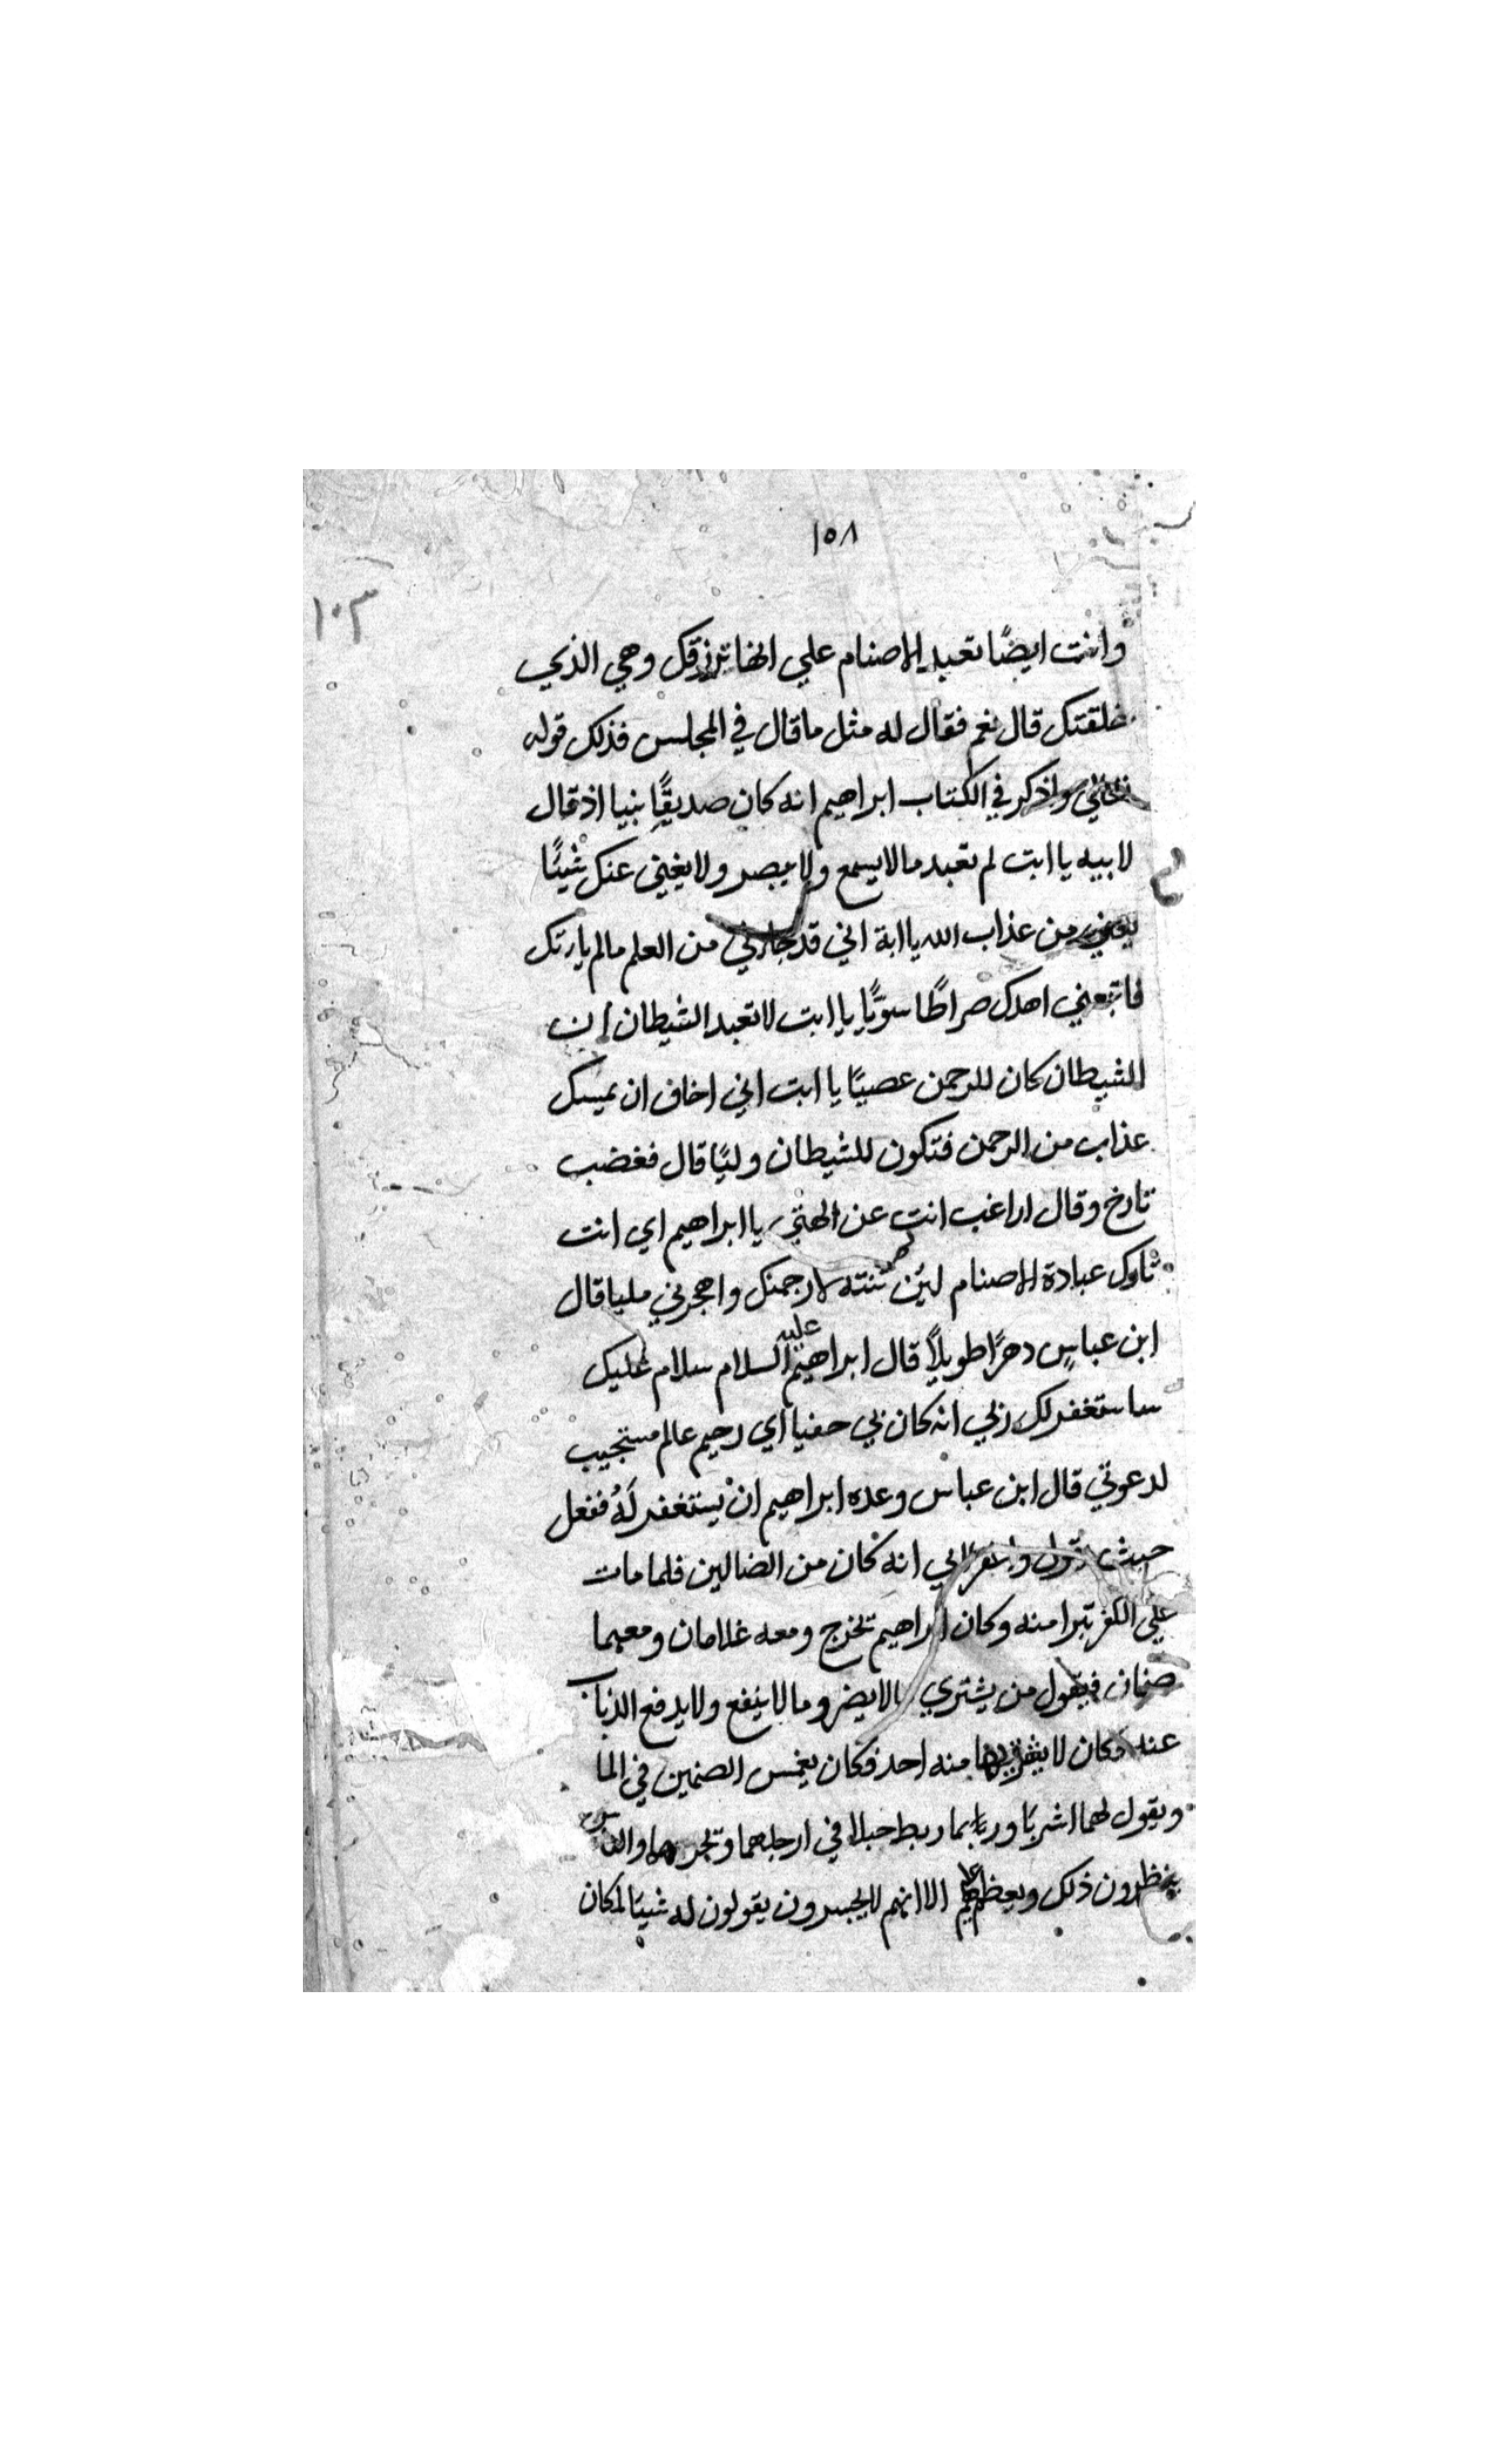 ١٥٨
١٠٣
وانت ايضًا تعبد الاصنام علي انها ترزقك وهي الذي
خلقتك قال نعم فقال له مثل ما قال في المجلس فذلك قوله
واذكر في الكتاب ابراهيم انه كان صديقًا نبيا اذ قال
لابيه يا ابت لم تعبد مالا يسمع ولا يبصر ولا يغني عنك شيئًا
يعني من عذاب الله يا ابة اني قد جاءني من العلم مالم ياتك
فاتبعني اهدك صراطًا سويًّا يا ابت لا تعبد الشيطان ان
الشيطان كان للرحمن عصيًا يا ابت اني اخاف ان يمسك
عذاب من الرحمن فتكون للشيطان وليًا قال فغضب
تارخ وقال اراغب انت عن الهتي يا ابراهيم اي انت
تارك عبادة الاصنام لين تنته لارجمنك واهجرني مليا قال
ابن عباسٍ دهرًا طويلاً قال ابراهيم عليه السلام سلام عليك
ساستغفر لك ربي انه كان بي حفيا اي رحيم عالم مستجيب
لدعوتي قال ابن عباس وعده ابراهيم ان يستغفر لَهُ ففعل
حيث يقول واغفر لابي انه كان من الضالين فلما مات
علي الكفر تبرا منه وكان ابراهيم تخرج ومعه غلامان ومعهما
صنمان فيقول من يشتري مالا يضر وما لا ينفع ولا يدفع الذباب
عنه فكان لا يشتريهما منه احد فكان يغمس الصنمين في الما
ويقول لهما اشربا وربما ربط حبلا في ارجلهما وتجرهما والناس
ينظرون ذلك ويعظم عليهم الا انهم لا يجسرون يقولون له شيئا لمكان